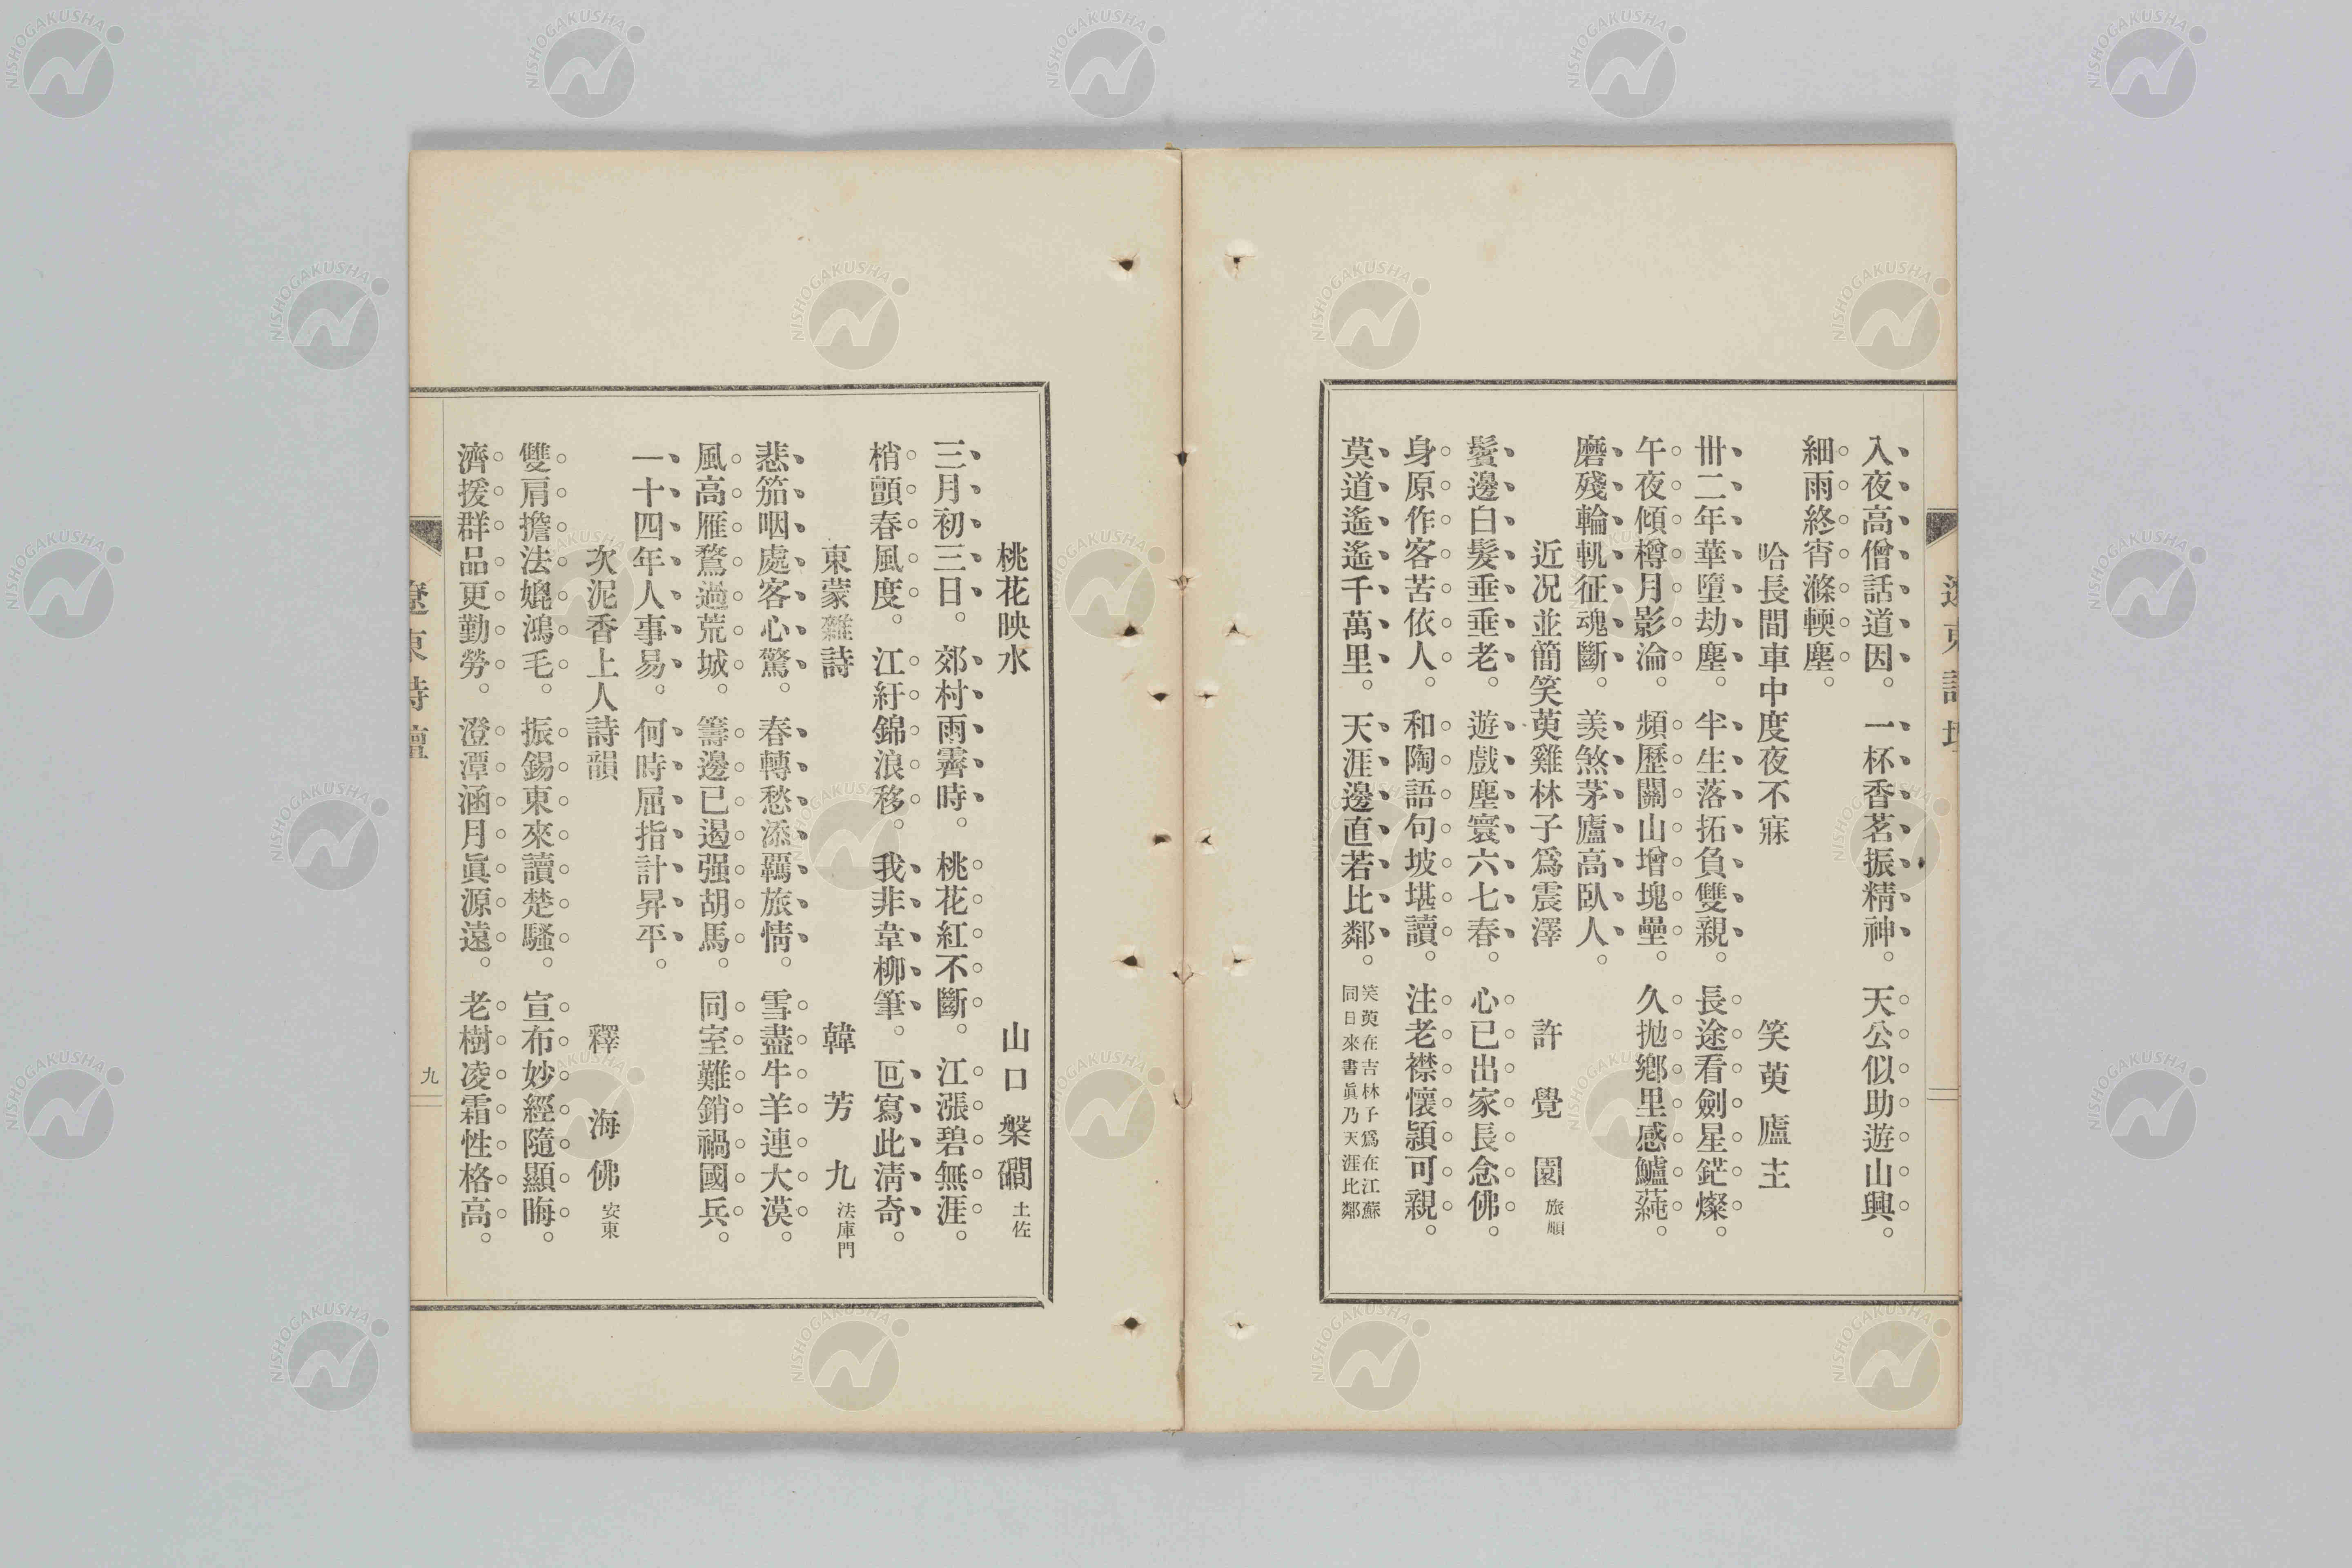 遼東詩壇
入夜高僧話道因。一杯香茗振精神。天公似助遊山興。
細雨終宵滌輭塵。
哈長間車中度夜不寐　笑萸廬主
卅二年華墮劫塵。半生落拓負雙親。長途看劍星鋩燦。
午夜傾樽月影淪。頻歷關山增塊壘。久拋鄉里感鱸蒓。
磨殘輪軌征魂斷。羨煞茅廬高臥人。
近況並簡笑萸雞林子爲震澤　許覺園 旅順
鬢邊白髮垂垂老。遊戲塵寰六七春。心已出家長念佛。
身原作客苦依人。和陶語句坡堪讀。注老襟懷潁可親。
莫道遙遙千萬里。天涯邊直若比鄰。笑萸在吉林子爲在江蘇
同日來書眞乃天涯比鄰
桃花映水　山口槃磵 土佐
三月初三日。郊村雨霽時。桃花紅不斷。江漲碧無涯。
梢顫春風度。江紆錦浪移。我非韋柳筆。叵寫此淸奇。
東蒙雜詩　韓芳九 法庫門
悲笳咽處客心驚。春轉愁添羈旅情。雪盡牛羊連大漠。
風高雁鶩過荒城。籌邊已遏强胡馬。同室難銷禍國兵。
一十四年人事易。何時屈指計昇平。
次泥香上人詩韻　釋海佛 安東
雙肩擔法媲鴻毛。振錫東來讀楚騷。宣布妙經隨顯晦。
濟援群品更勤勞。澄潭涵月眞源遠。老樹凌霜性格高。
遼東詩壇
九